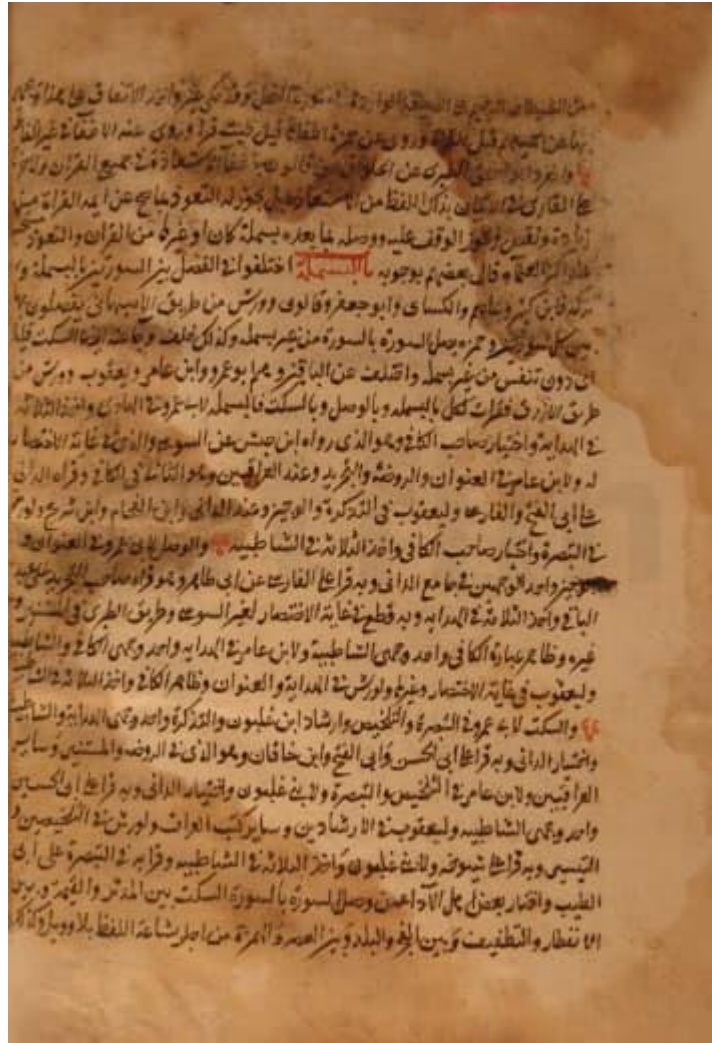 من الشيطان الرجيم
بها عن الجميع قبل القراة وروى عن حمزة اخفاؤها قيل حيث قرا وروى عنه الاخفاء في غير الفاتحة
الطبرى عن الحلوانى عن قالون اخفا الاستعاذة فى جميع القران
القارى فى الاتيان بذلك اللفظ من الاستعاذة يجوز له التعوذ بما صح عن ايمة القراة من
زيادة ونقص ويجوز الوقف عليه ووصله بما بعده بسملة كان او غيرها من القران والتعوذ
قال بعضهم بوجوبه باب البسملة اختلفوا فى الفصل بين السورتين بالبسملة و
فابن كثير وعاصم والكساى وابو جعفر وقالون وورش من طريق الاصبهانى يفصلون
بين كل سورتين وحمزه يصل السوره بالسورة من غير بسمله وكذلك خلف وجا عنه ايضا السكت قليلا
اى دون تنفس من غير بسملة واختلف عن الباقين وهم ابو عمرو وابن عامر ويعقوب وورش من
طريق الازرق فقرات لكل بالبسمله وبالوصل وبالسكت فالبسملة لابى عمرو فى الهادى واحد الثلاثة
فى الهداية واختيار صاحب الكافى وهو الذى رواه ابن حبش عن السوسى والذى فى غاية الاختصار
له ولابن عامر فى العنوان والروضة والتجريد وعند العراقيين وهو الثانى فى الكافى وقراة الدانى
على ابى الفتح والفارسى وليعقوب فى التذكرة والوجيز وعند الدانى وابن الفحام وابن شريح ولورش
فى التبصرة واختيار صاحب الكافى واحد الثلاثة فى الشاطبية والوصل لابى عمرو فى العنوان و
الوجيز واحد الوجهين فى جامع الدانى وبه قرا على الفارسى عن ابى طاهر وهو قراة صاحب التجريد على عبد
الباقى واحد الثلاثة فى الهدايه وبه قطع فى غاية الاختصار لغير السوسى وطريق الطبرى فى المستنير و
غيره وظاهر عبارة الكافى واحد وجهى الشاطبية ولابن عامر فى الهدايه واحد وجهى الكافى والشاطبية
وليعقوب فى غاية الاختصار وغيرها ولورش فى الهداية والعنوان وظاهر الكافى واحد الثلاثة فى الشاطبية
والسكت لابى عمرو فى التبصرة والتلخيص وارشاد ابن غلبون والتذكرة واحد وجهى الهداية والشاطبية
واختيار الدانى وبه قرا على ابى الحسن وابى الفتح وابن خاقان وهو الذى فى الروضه والمستنير وساير
العراقيين ولابن عامر فى التلخيص والتبصرة ولابنى غلبون واختيار الدانى وبه قرا على ابى الحسن
واحد وجهى الشاطبيه وليعقوب فى الارشادين وساير كتب العراق ولورش فى التلخيصين و
التيسير وبه قرا على شيوخه ولابنى غلبون واحد الثلاثة فى الشاطبيه وقرا به فى التبصرة على ابى
الطيب واختار بعض اهل الادا عمن وصل السورة بالسورة السكت بين المدثر والقيمه وبين
الانفطار والتطفيف وبين الفجر والبلد وبين العصر والهمزة من اجل بشاعة اللفظ بلا وويل وكذلك